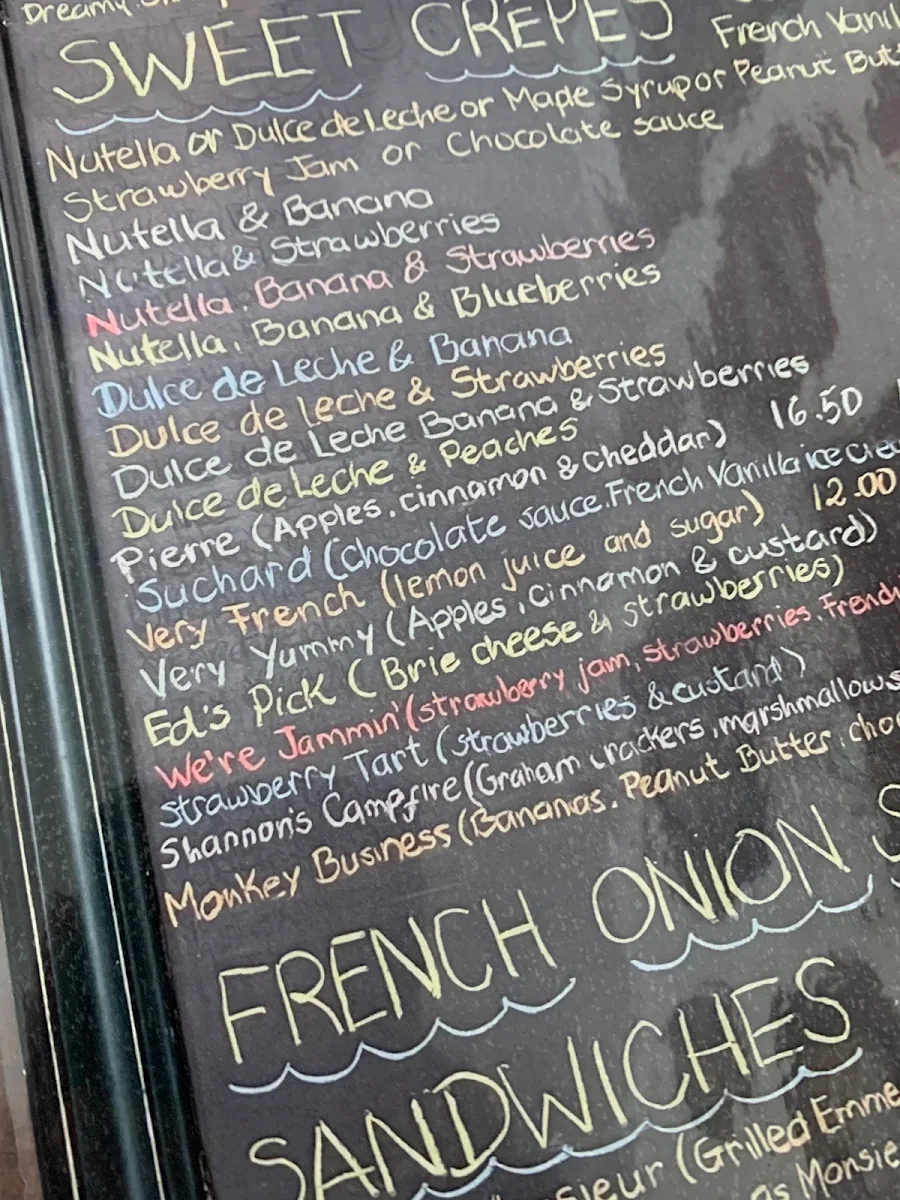 Dreamy
SWEET CRÊPES
French Vanil
Nutella or Dulce de Leche or Maple Syrup or Peanut Butt
Strawberry Jam or Chocolate sauce
Nutella & Banana
Nutella & Strawberries
Nutella, Banana & Strawberries
Nutella, Banana & Blueberries
Dulce de Leche & Banana
Dulce de Leche & Strawberries
Dulce de Leche Banana & Strawberries
Dulce de Leche & Peaches
Pierre (Apples, cinnamon & cheddar) 16.50
Suchard (chocolate sauce. French Vanilla ice crea
Very French (lemon juice and sugar) 12.00
Very Yummy (Apples, cinnamon & custard)
Ed's Pick (Brie cheese & strawberries)
We're Jammin' (strawberry jam, strawberries, French
Strawberry Tart (strawberries & custard)
Shannon's Campfire (Graham crackers, marshmallows
Monkey Business (Bananas, Peanut Butter, choc
FRENCH ONION S
SANDWICHES
sieur (Grilled Emme
as Monsie